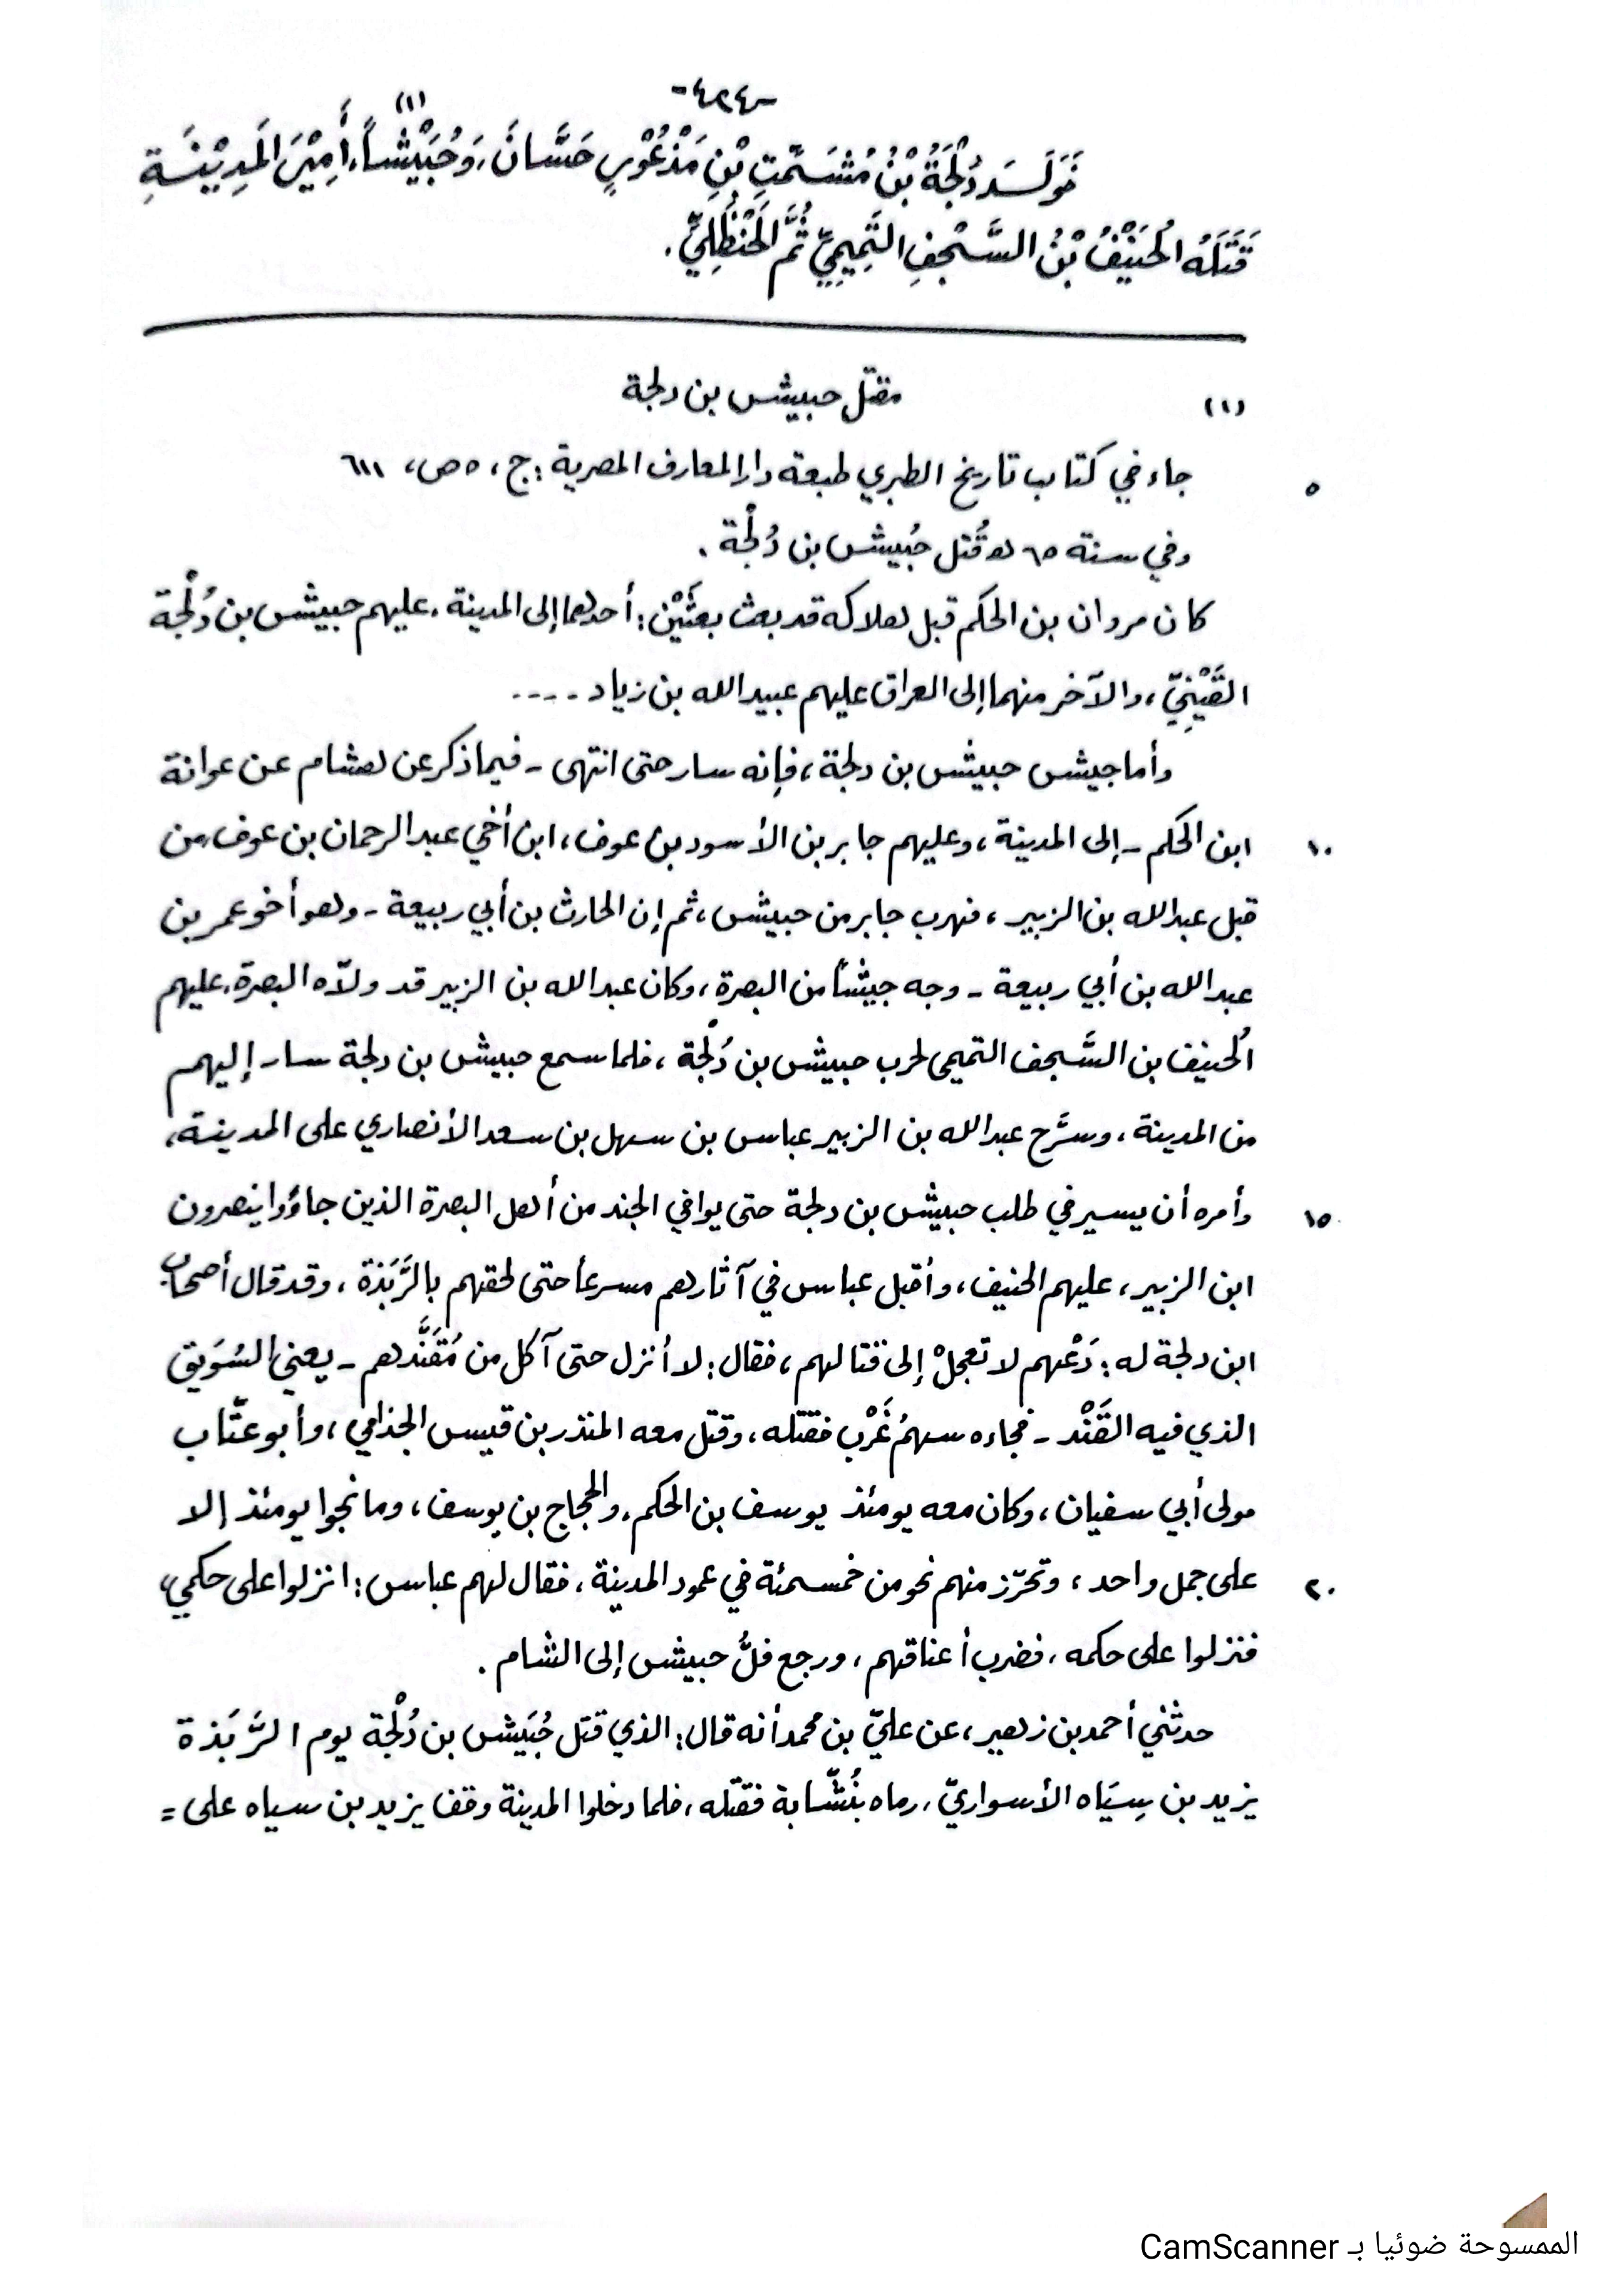 -٤٢٤-
فَوَلَدَ دُلْجَةُ بْنُ مُشَمِّتِ بْنِ مَذْعُوْرٍ حَسَّانَ، وَحُبَيْشاً،(١) أَمِيْرَ المَدِيْنَةِ
قَتَلَهُ الحُنَيْفُ بْنُ السَّجْفِ التَّمِيمِيِّ ثُمَّ الحَنْظَلِيِّ.
(١) مقتل حبيش بن دلجة
٥ جاء في كتاب تاريخ الطبري طبعة دار المعارف المصرية: ج، ٥ ص، ٦١١
وفي سنة ٦٥ هـ قُتل حُبيش بن دُلْجة.
كان مروان بن الحكم قبل هلاكه قد بعث بعثَيْن: أحدهما إلى المدينة، عليهم حبيش بن دُلْجة
القَيْنِيّ، والآخر منهما إلى العراق عليهم عبيد الله بن زياد ....
وأما جيش حبيش بن دلجة، فإنه سار حتى انتهى - فيما ذكر عن هشام عن عوانة
١٠ ابن الحكم - إلى المدينة، وعليهم جابر بن الأسود بن عوف، ابن أخي عبد الرحمان بن عوف، من
قبل عبد الله بن الزبير، فهرب جابر من حبيش، ثم إن الحارث بن أبي ربيعة - وهو أخو عمر بن
عبد الله بن أبي ربيعة - وجه جيشاً من البصرة، وكان عبد الله بن الزبير قد ولّاه البصرة، عليهم
الحُنيف بن السَّجف التميمي لحرب حبيش بن دُلْجة، فلما سمع حبيش بن دلجة سار إليهم
من المدينة، وسرَّح عبد الله بن الزبير عباس بن سهل بن سعد الأنصاري على المدينة،
١٥ وأمره أن يسير في طلب حبيش بن دلجة حتى يوافي الجند من أهل البصرة الذين جاؤوا ينصرون
ابن الزبير، عليهم الحنيف، وأقبل عباس في آثارهم مسرعاً حتى لحقهم بالرَّبَذة، وقد قال أصحاب
ابن دلجة له: دَعْهم لا تعجلْ إلى قتالهم، فقال: لا أنزل حتى آكل من مُقَنَّدهم - يعني السُوَيق
الذي فيه القَنْد - فجاءه سهمُ غَرْب فقتله، وقتل معه المنذر بن قيس الجذامي، وأبو عتَّاب
مولى أبي سفيان، وكان معه يومئذ يوسف بن الحكم، والحجاج بن يوسف، وما نجوا يومئذ إلا
٢٠ على جمل واحد، وتحرّز منهم نحو من خمسمئة في عمود المدينة، فقال لهم عباس: انزلوا على حكمي،
فنزلوا على حكمه، فضرب أعناقهم، ورجع فلُّ حبيش إلى الشام.
حدثني أحمد بن زهير، عن عليّ بن محمد أنه قال: الذي قتل حُبَيش بن دُلْجة يوم الرَّبَذة
يزيد بن سِيَاه الأسواريّ، رماه بنُشَّابة فقتله، فلما دخلوا المدينة وقف يزيد بن سياه على =
الممسوحة ضوئيا بـ CamScanner